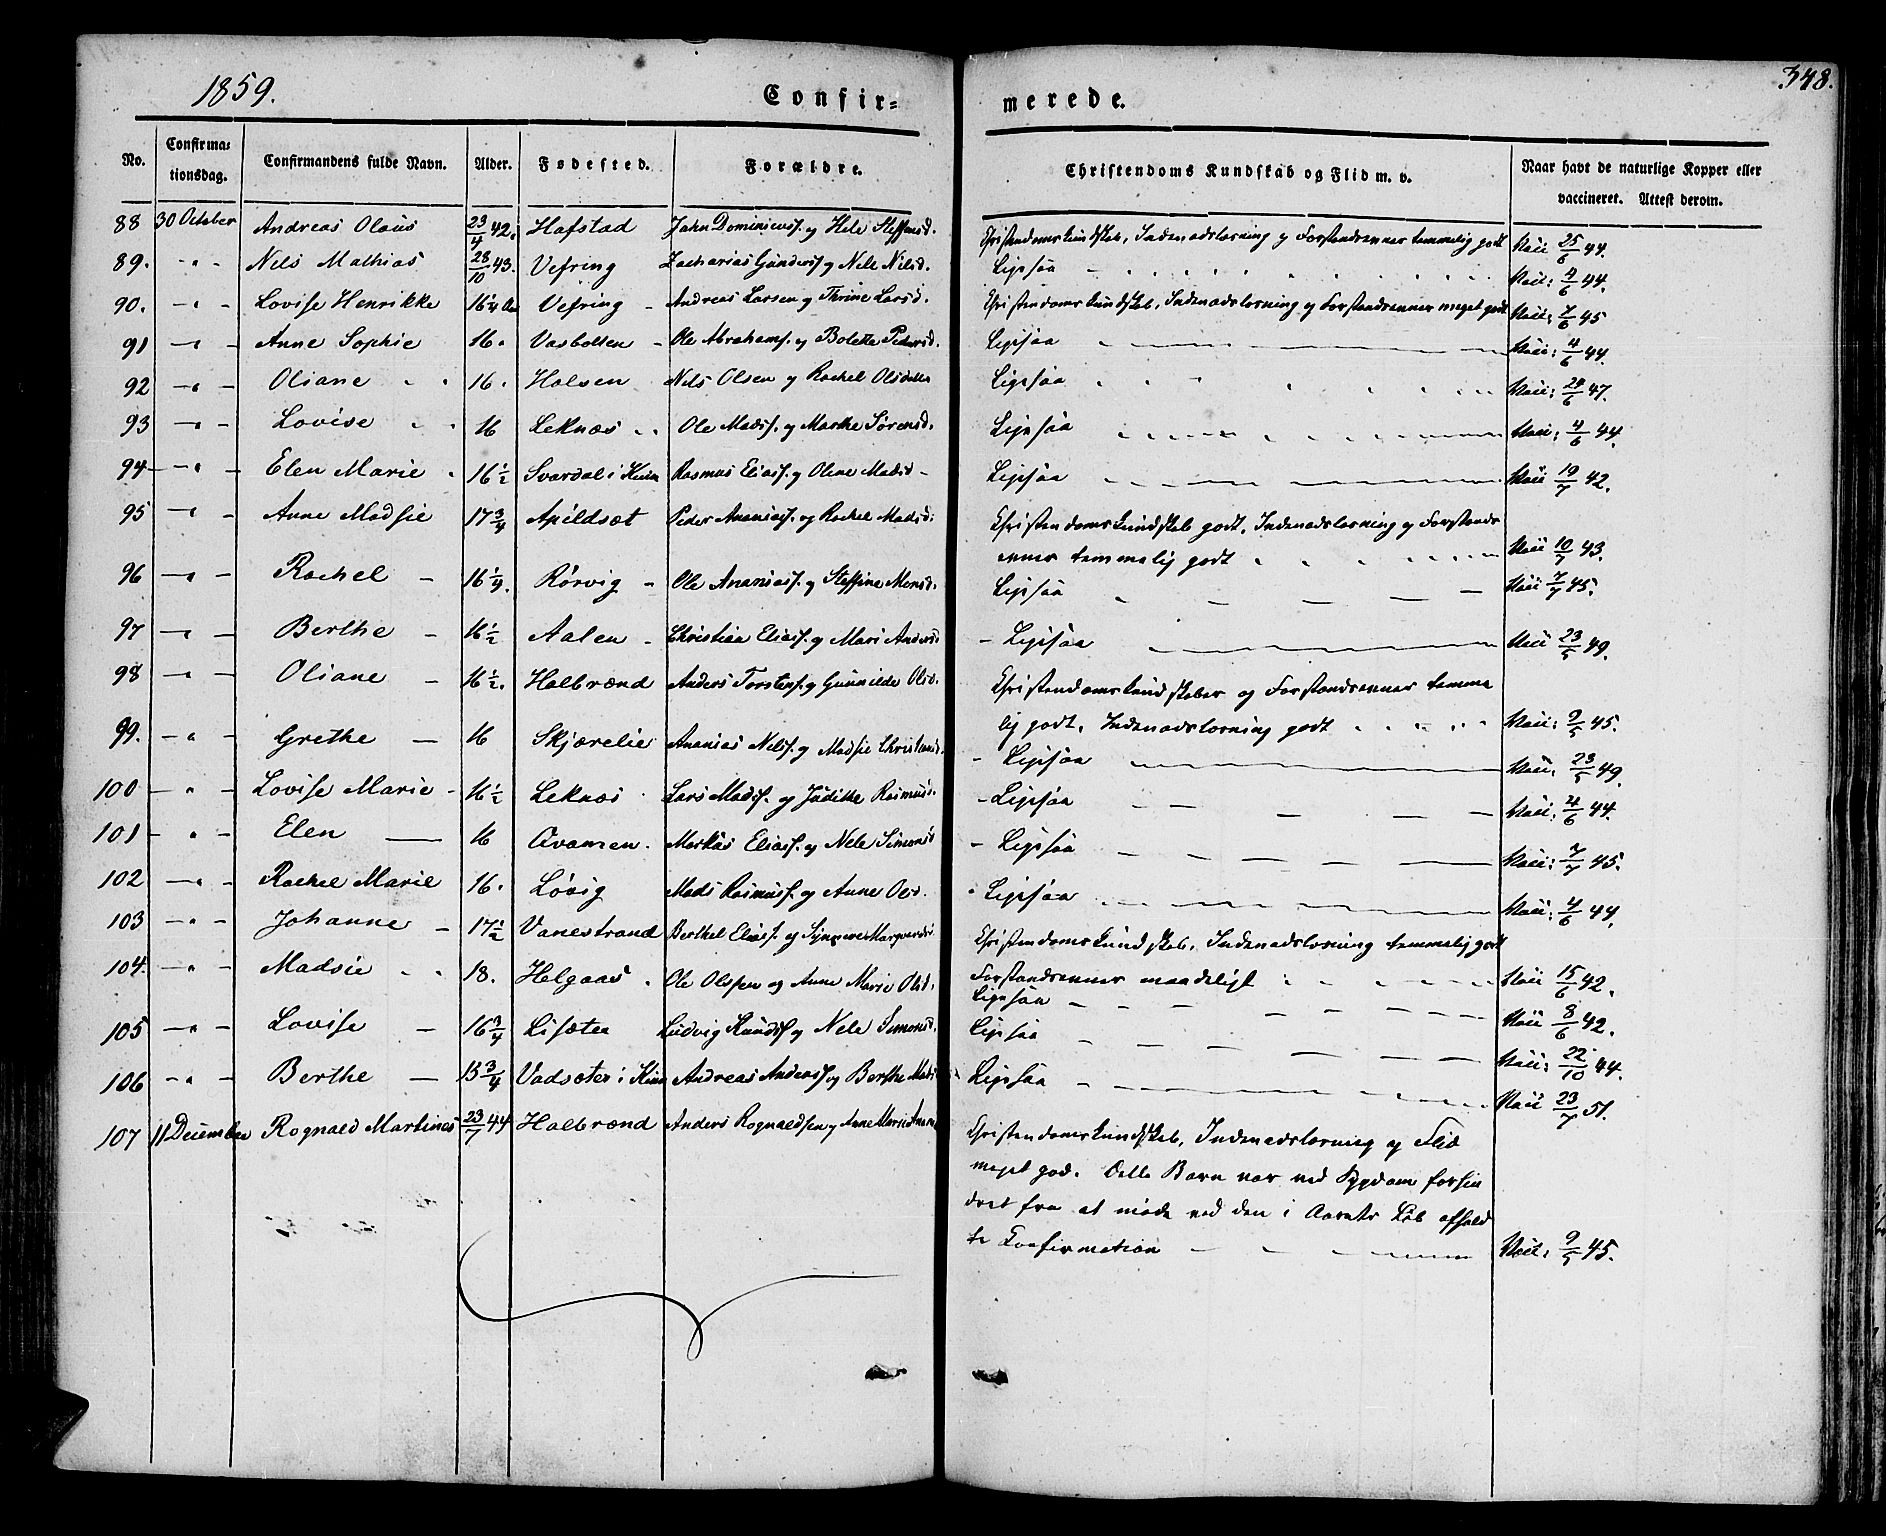 1859.
Confir=
merede.
348.
No.
Confirma=
tionsdag.
Confirmandens fulde Navn.
Alder.
Fødested.
Forældre.
Christendoms Kundskab og Flid m. v.
Naar havt de naturlige Kopper eller
vaccineret. Attest derom.
88 30 October Andreas Olaus 23/4 42. Hafstad Steffensd. Christendomskundskab, Indenadslæsning og Forstandsevner temmelig godt Vacc 25/6 44.
89. - " - Nils Mathias 28/10 43. Vefring Zacharias og Nele Nilsd. Ligesaa Vacc: 4/6 44.
90. - " - Lovise Henrikke 16 1/4 Vefring - Andreas Larsen og Thrine Larsd. Christendomskundskab, Indenadslæsning og Forstandsevner meget godt Vacc: 7/6 45
91 - " - Anne Sophie 16. Vasbotten - Ole Abrahams. og Bolette Pedersd. Ligesaa Vacc: 4/6 44.
92 - " - Oliane 16. Halsen Nils Olsen og Rachel Olsdatter Ligesaa Vacc: 24/6 47.
93 - " - Lovise 16 Leknæs Ole Mads. og Marthe Sørensd. Ligesaa Vacc: 4/6 44.
94 - " - Elen Marie 16 1/2 Svardal i Kinn Rasmus Elias. og Oline Madsd - Ligesaa Vacc 19/7 42.
95 - " - Anne Madsie 17 3/4 Apildsæt Peder Ananias. og Rachel Madsd: Christendomskundskab godt, Indenadslæsning og Forstands
evner temmelig godt Vacc 10/7 43.
96 - " - Rachel - 16 1/4. Rørvig - Ole Ananias. og Steffine Monsd. Ligesaa Vacc 7/7 45.
97 - " - Berthe - 16 1/2 Aalen - Christian Elias. og Mari Andersd - Ligesaa Vacc 23/5 49.
98 - " - Oliane - 16 1/2. Halbrænd Anders Torstens. og Gunnilde Olsd. Christendomskundskaber og Forstandsevner temme
lig godt, Indenadslæsning godt Vacc: 9/5 45.
99. - " - Grethe - 16 Skjærelie Ananias Nils. og Madsie Christensd. - Ligesaa Vacc. 23/5 49
100 - " - Lovise Marie - 16 1/2 Leknæs Lars Mads. og Judithe Rasmusd. - Ligesaa Vacc. 4/6 44.
101 - " - Elen - 16 Markus Elias. og Nele Simonsd - Ligesaa Vacc: 7/7 45.
102 - " - Rachel Marie 16. Løvig Mads Rasmus. og Anne Olsd. Ligesaa Vacc: 4/6 44.
103 - " - Johanne - 17 1/2 Vanestrand Berthel Elias. og Synneve Christendomskundskab, Indenadslæsning temmelig godt
Forstandsevner maadeligt Vacc 15/6 42.
104. - " - Madsie 18. Helgaas Ole Olsen og Anne Marie Olsd. Ligesaa Vacc 8/6 42.
105 - " - Lovise - 16 3/4 Lisæter Ludvig Knuds. og Nele Simonsd. Ligesaa Vacc: 22/10 44.
106 - " - Berthe - 15 3/4 Vadsæter i Kinn Andreas Anders. og Berthe Mads Ligesaa Vacc 23/7 51.
107 11 December Rognald Martinus 23/7 44 Halbrænd Anders Rognaldsen og Anne Marie Christendomskundskab, Indenadslæsning og Flid
meget god. Dette Barn var ved Sygdom forhin
dret fra at møde ved den i Aarets Løb afhold
te Confirmation Vacc: 9/5 45.